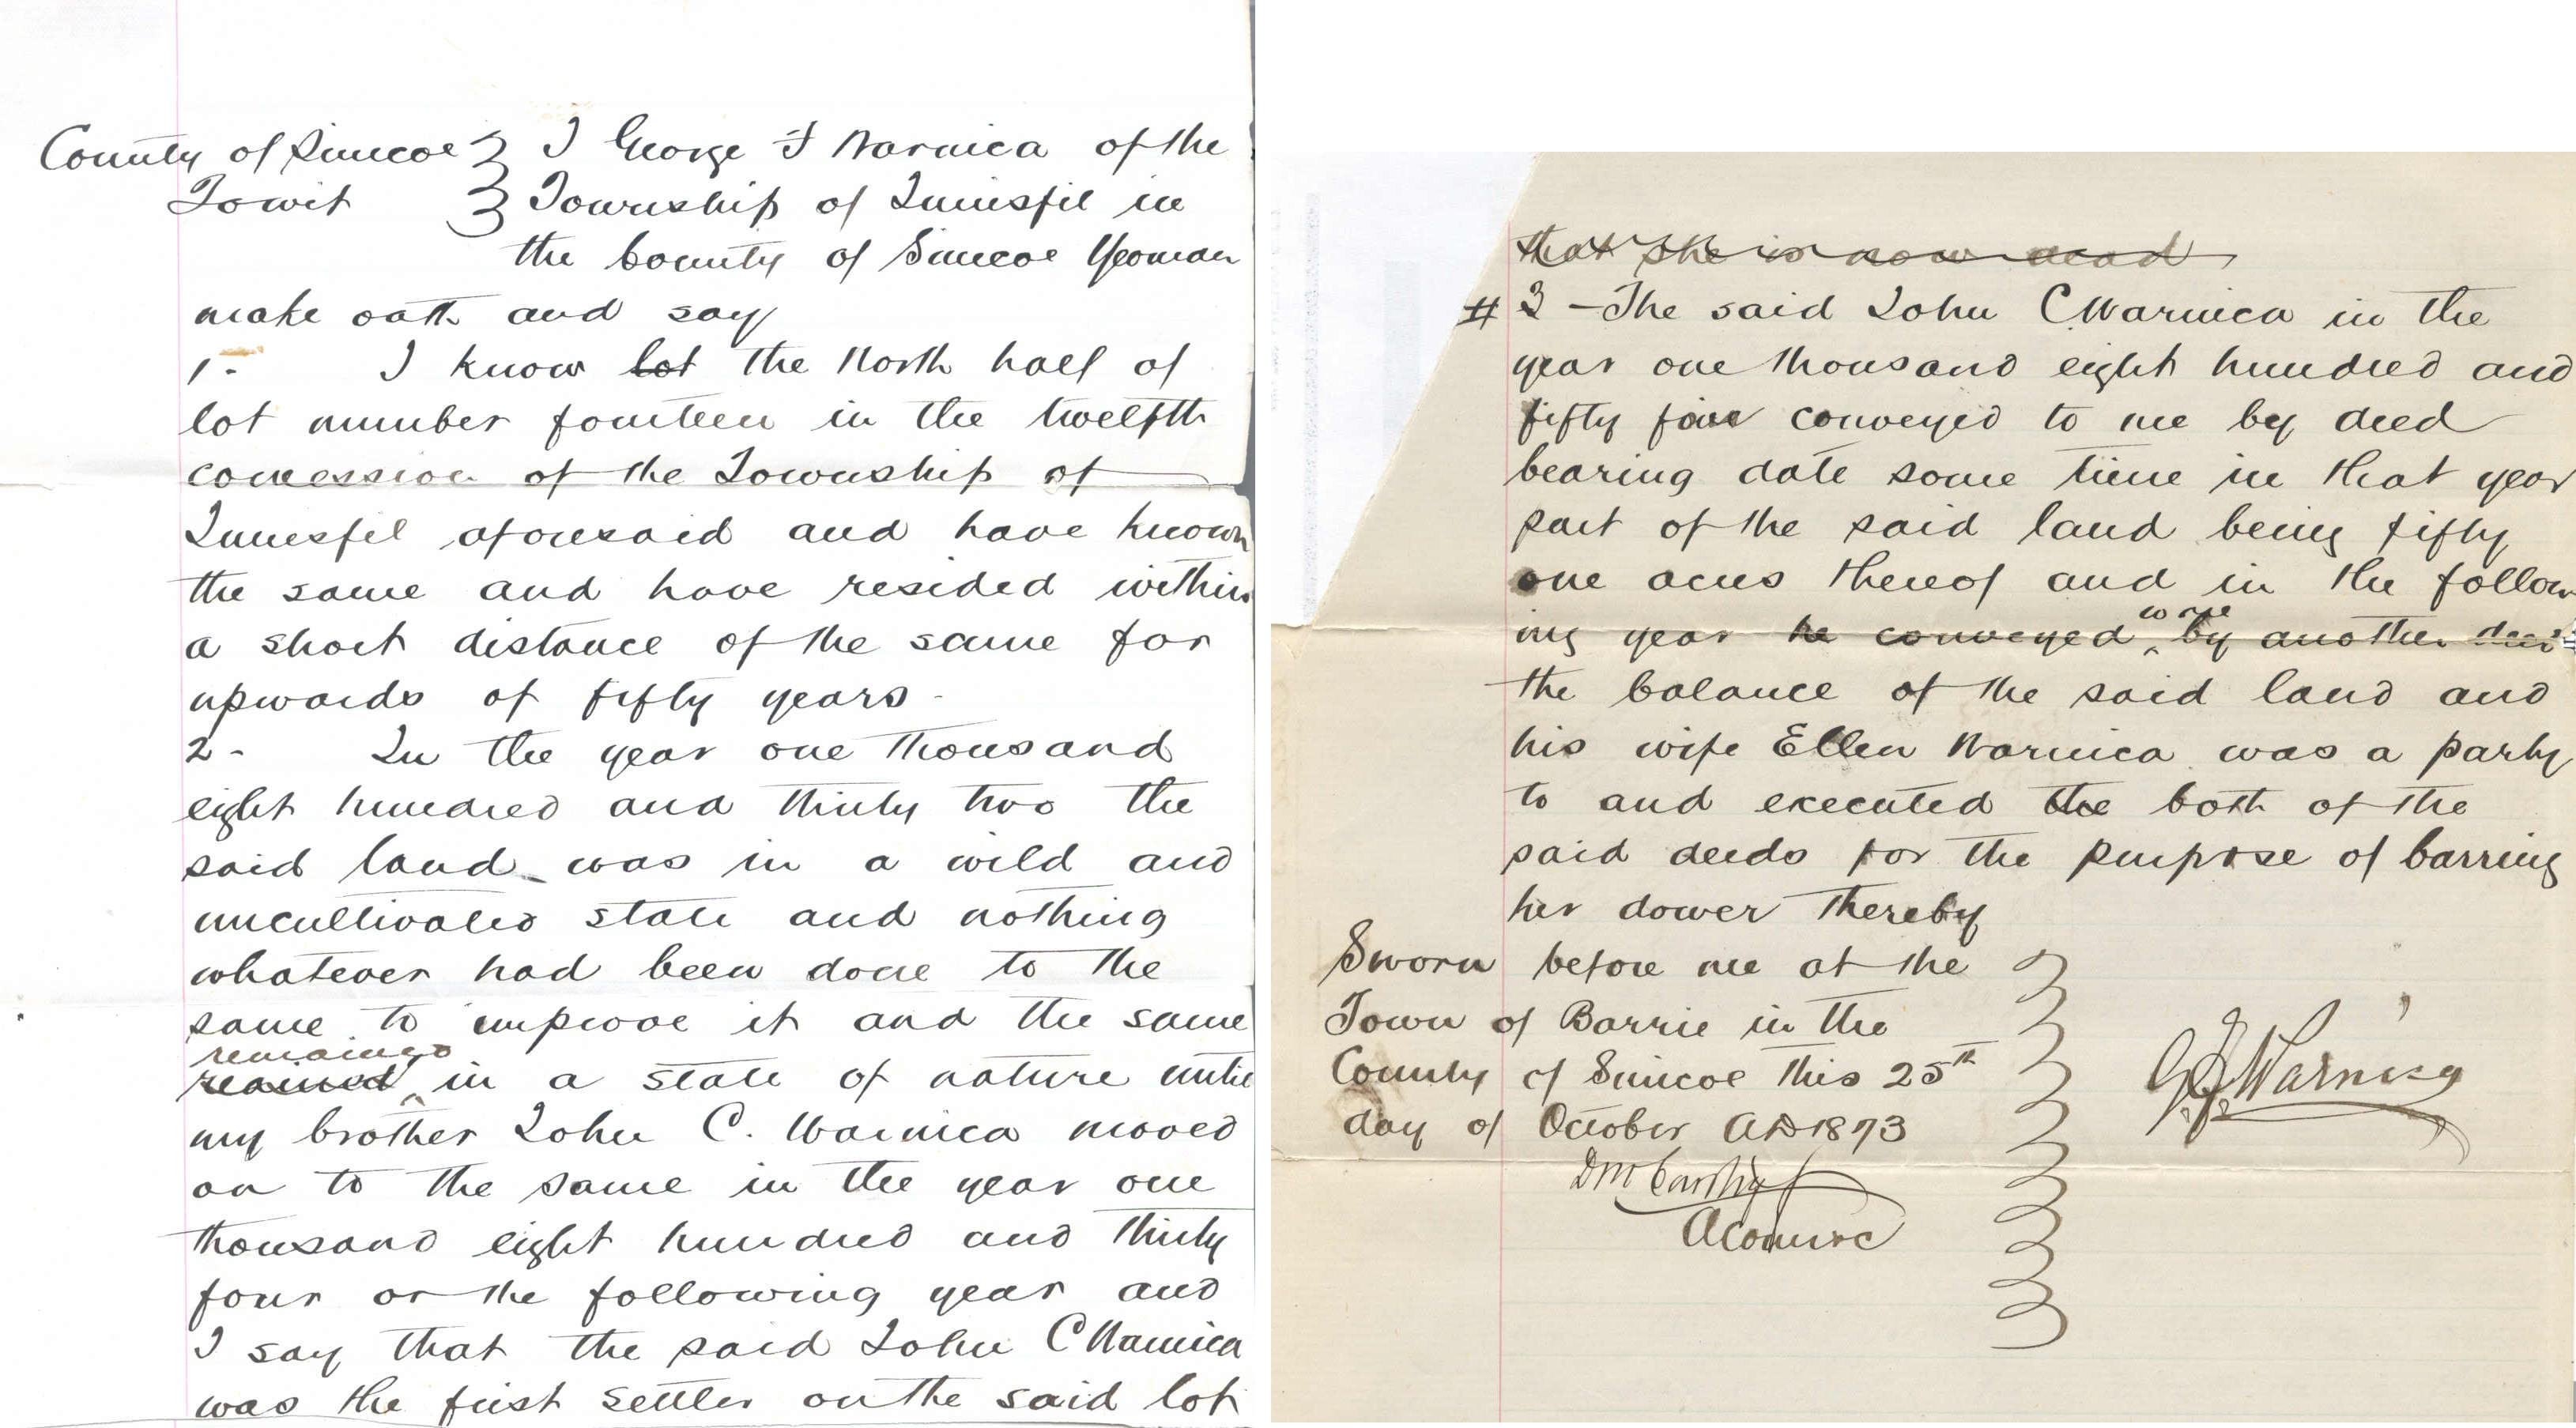 County of Simcoe } I George F Warnica of the
Towit } Township of Innisfil in
the County of Simcoe Yeoman
make oath and say
1- I know lot the North half of
lot number fourteen in the twelfth
concession of the Township of
Innesfil aforesaid and have known
the same and have resided within
a short distance of the same for
upwards of fifty years -
2- In the year one thousand
eight hundred and thirty two the
said land was in a wild and
uncultivated state and nothing
whatever had been done to the
same to improve it and the same
remained
in a state of nature until
my brother John C. Warnica moved
on to the same in the year one
thousand eight hundred and thirty
four or the following year and
I say that the said John C Warnica
was the first settler on the said lot
that she is now dead
# 3 - The said John C. Warnica in the
year one thousand eight hundred and
fifty five conveyed to me by deed
bearing date some time in that year
part of the said land being fifty
one acres thereof and in the follow
ing year he conveyed by another deed
the balance of the said land and
his wife Ellen Warnica was a party
to and executed the both of the
said deeds for the purpose of barring
her dower thereby
Sworn before me at the
Town of Barrie in the
County of Simcoe this 25th
day of October AD 1893
G.F. Warnica
D McCarthy
A Comrc